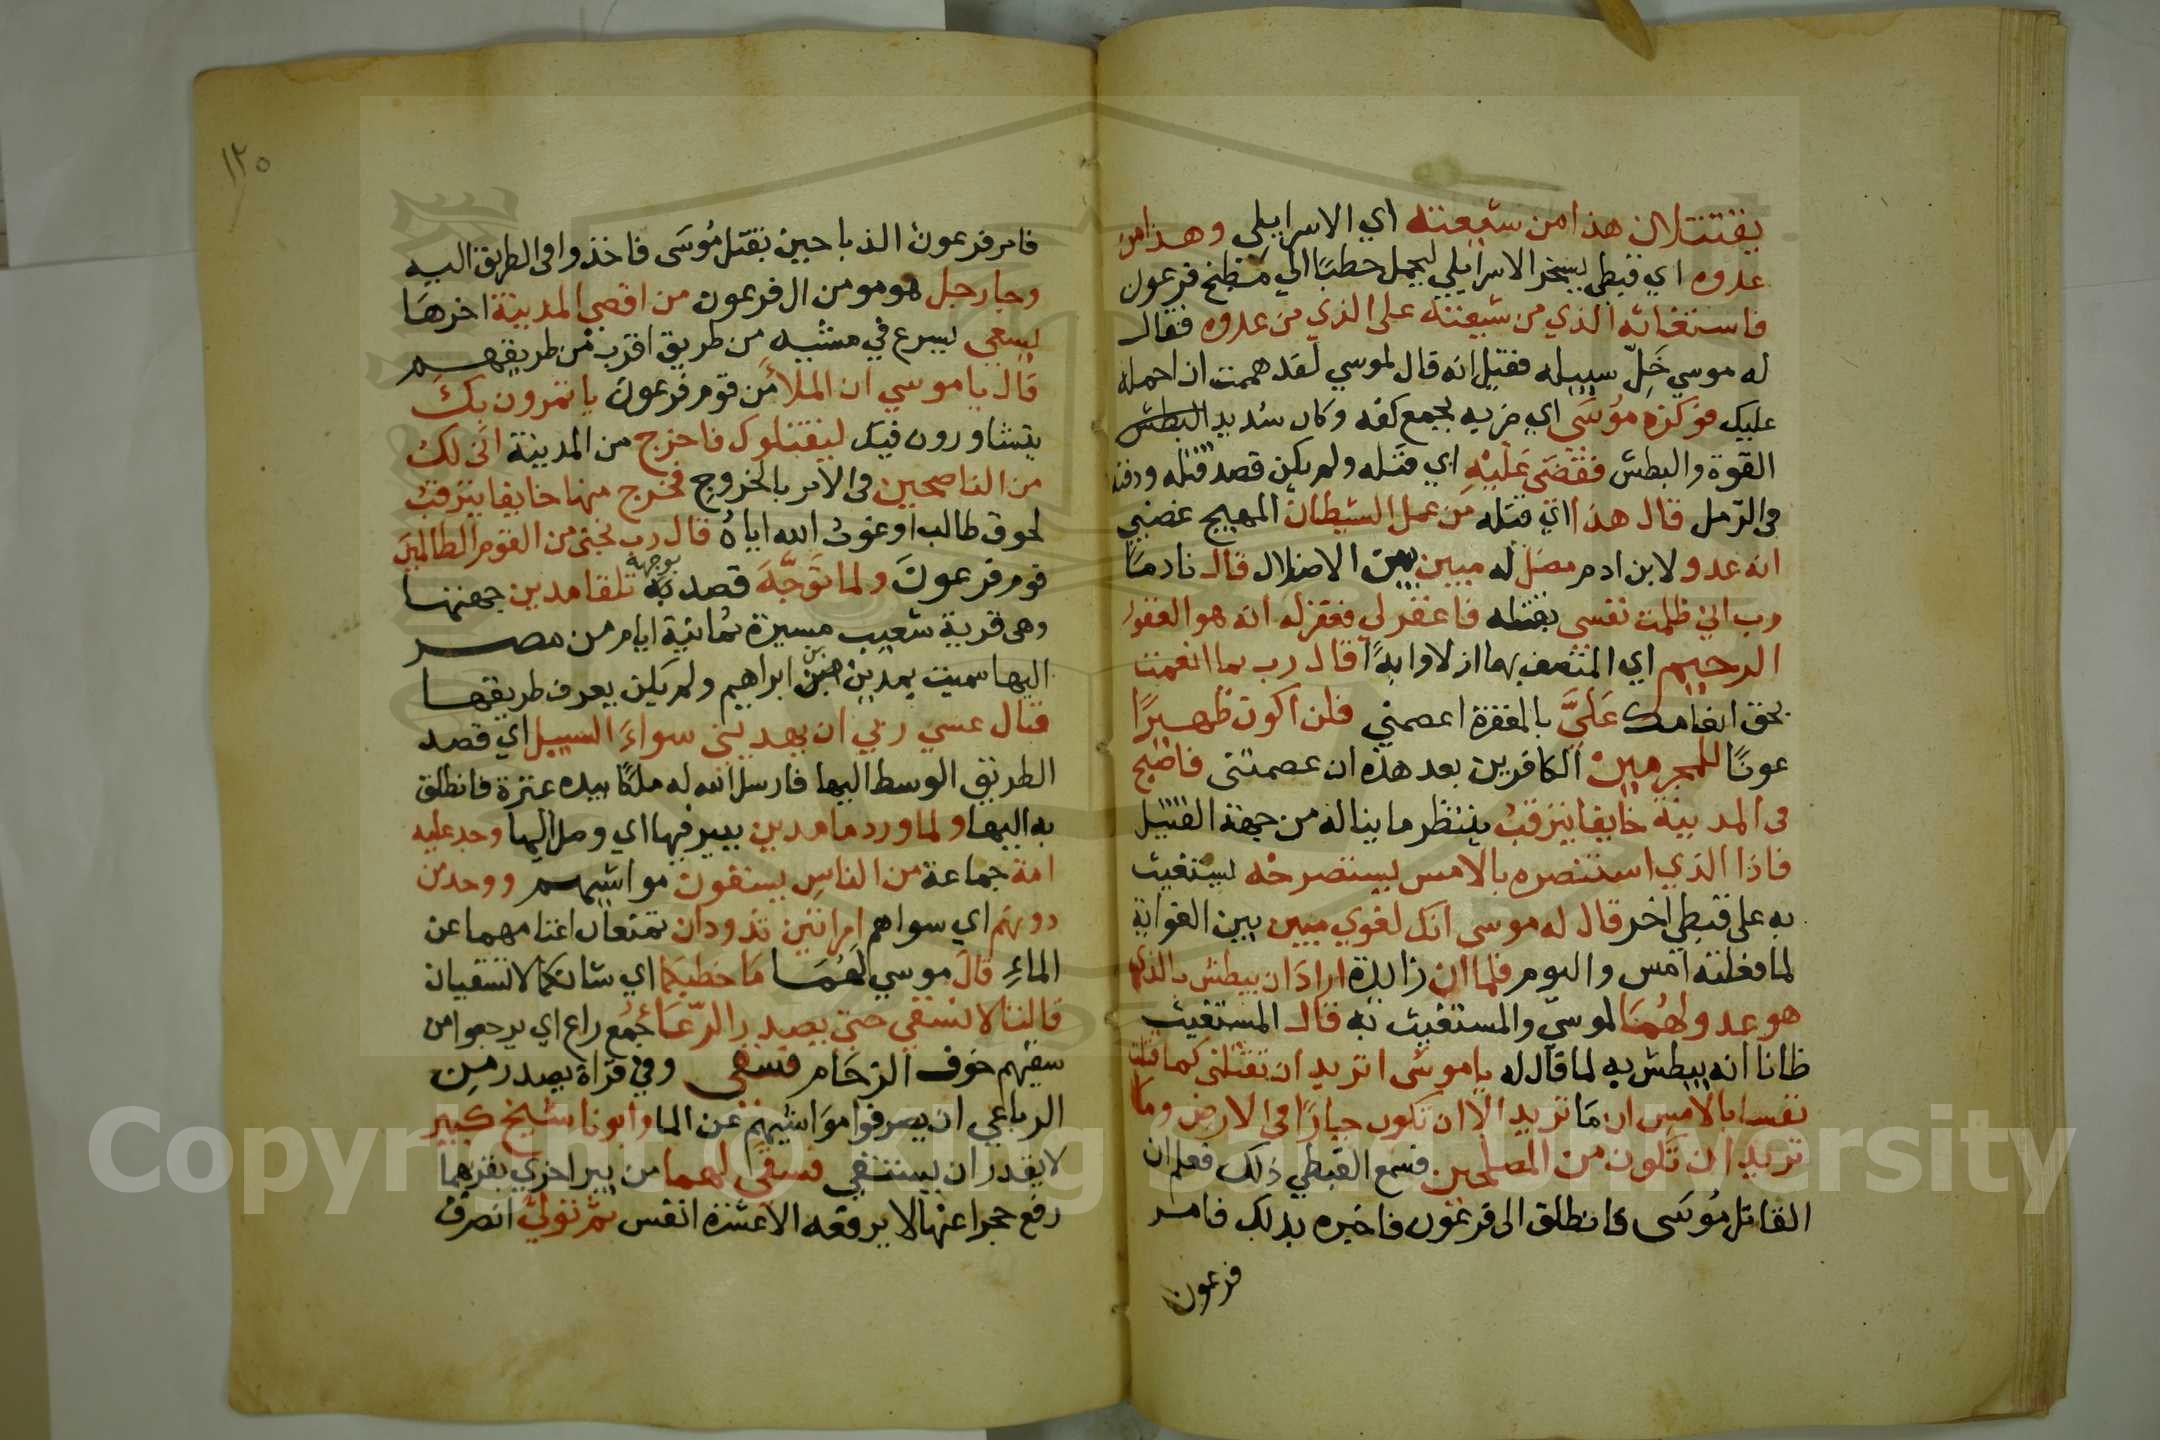 يقتتلان هذا من شيعته اي الاسرايلي وهذا من
عدوه اي قبطي يسخر الاسرايلي ليحمل حطبا الي مطبخ فرعون
فاستغاثه الذي من شيعته علي الذي من عدوه فقال
له موسي خَلّ سبيله فقيل انه قال لموسي لقد هممت ان احمله
عليك فوكزه موُسَي اي ضربه بجمع كفه وكان شديد البطش
القوة والبطش فقَضَي عَلَيْهِ اي قتله ولم يكن قصد قتله ودفنه
في الرّمل قال هذا اي قتله من عمل الشيطان المهيج غضبي
انه عدو لابن ادم مضل له مبين بين الاضلال قال نادما
رب اني ظلمت نفسي بقتله فاغفر لي فغفر له انه هو الغفور
الرحيم اي المتصف بهما ازلا وابدًا قال رب بما انعمت
بحق انعامك عَلَيَّ بالمغفرة اعصمني فلن اكون ظهيرًا
عونًا للمجرمين الكافرين بعد هذه ان عصمتني فاصبح
في المدينة خايفا يترقب ينتظر ما يناله من جهة القتيل
فاذا الذي استنصره بالامس يستصرخه يستغيث
به علي قبطي اخر قال له موسي انك لغوي مبين بين الغواية
لما فعلته امس واليوم فلما ان زايدة اراد ان يبطش بالذي
هو عدو لهُمَا لموسي والمستغيث به قال المستغيث
ظانا انه يبطش به لما قال له ياموسي اتريد ان تقتلني كما قتلت
نفسا بالامس ان مَا تريد الا ان تكون جبارًا في الارض وما
تريد ان تكون من المصلحين فسمع القبطي ذلك فعلم ان
القاتل مُوسَي فانطلق الي فرعون فاخبره بذلك فامر
فرعون
١٢٠
فامر فرعون الذباحين بقتل مُوسَي فاخذوا في الطريق اليه
وجا رجل هو مومن ال فرعون من اقصي المدينة اخرهَا
يسعي يسرع في مشيه من طريق اقرب من طريقهم
قال ياموسي ان الملأ من قوم فرعون ياتمرون بك
يتشاورون فيك ليقتلوك فاخرج من المدينة اني لك
من الناصحين في الامر بالخروج فخرج منها خايفا يترقب
لحوق طالب او غوث الله اياهُ قال رب نجني من القوم الظالمين
قوم فرعونَ ولما تَوَجَّهَ قصد به بوجهه تلقا مدين جهتها
وهي قرية شعيب مسيرة ثمانية ايام من مصر
اليها سميت بمدين بن ابراهيم ولم يكن يعرف طريقها
قال عسي ربي ان يهديني سواءَ السبيل اي قصد
الطريق الوسط اليها فارسل الله له ملكًا بيده عنزة فانطلق
به اليها ولما ورد ما مدين بير فيها اي وصل اليها وجد عليه
امة جماعة من الناس يسقون مواشيهم ووجد من
دونهم اي سواهم امراتين تذودان تمنعان اغنامهما عن
الماءِ قالَ موسي لهُمَا مَا خطبكما اي شانكما لا تسقيان
قالتا لا نسقي حتي يصدر الرّعَا جمع راع اي يرجعوا من
سقيهم خوف الزحام فنسقي وفي قراة يصدر من
الرباعي ان يصرفوا موَاشيهم عن الما وابونا شيخ كبير
لا يقدر ان يستسقي فسقي لهما من بير اخري بقربهما
رفع حجرا عنها لا يرفعه الا عشرة انفس ثم تولي انصرف